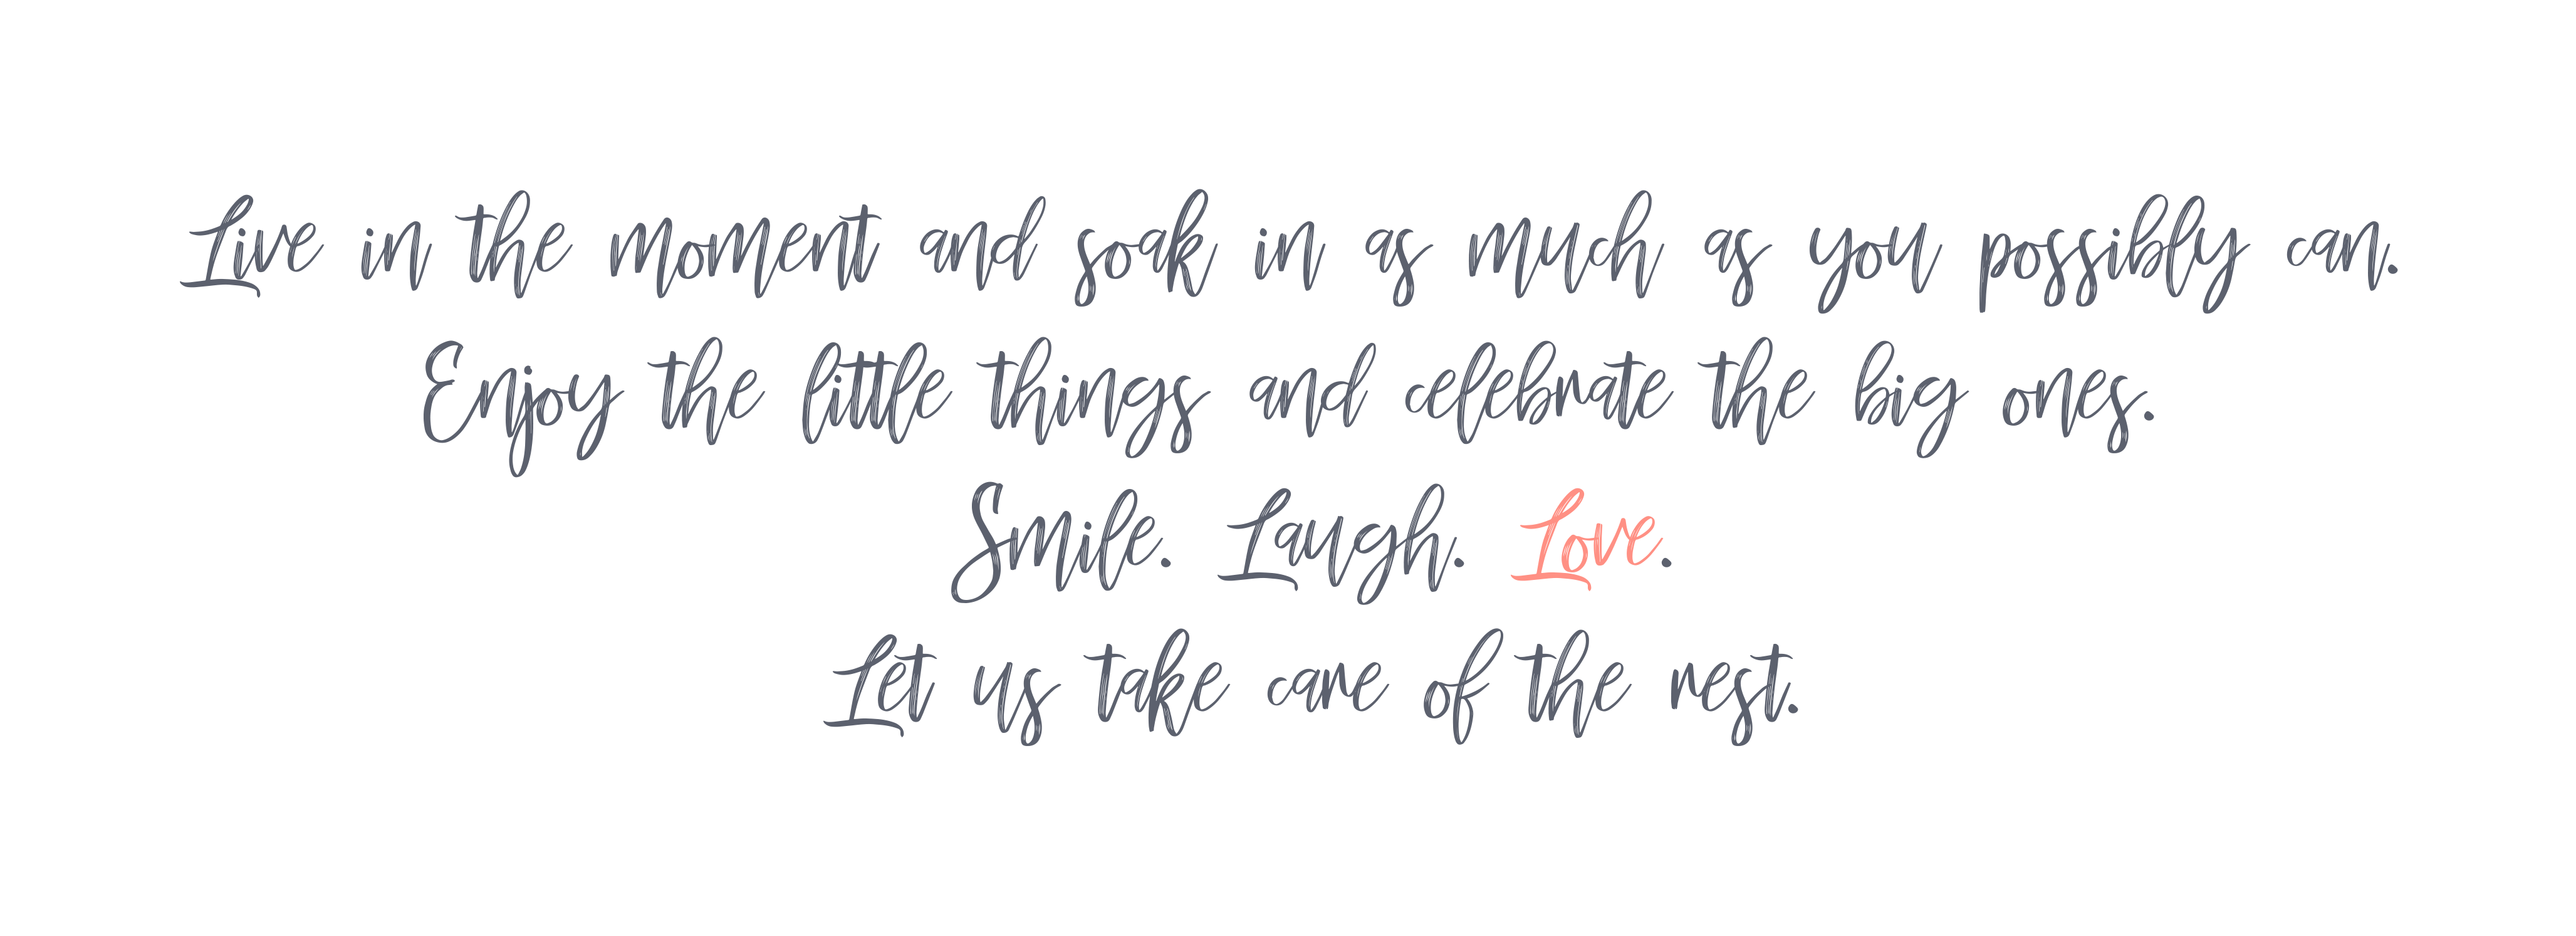 Live in the moment and soak in as much as you possibly can.
Enjoy the little things and celebrate the big ones.
Smile. Laugh. Love.
Let us take care of the rest.